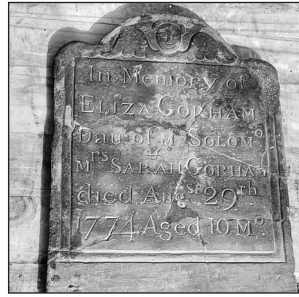 In Memory of
ELIZA GORHAM
Dau of Mr SOLOMo
& Mrs SARAH GORHAM
died Augst 29th
1774 Aged 10 Mo